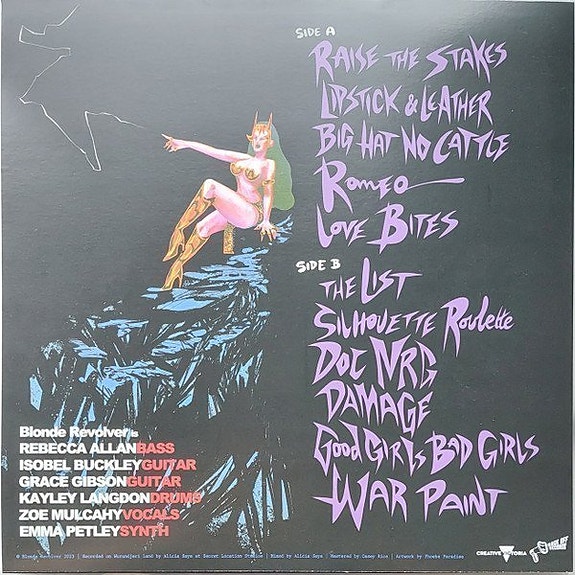 SIDE A
RAISE THE STAKES
LIPSTICK & LEATHER
BIG HAT NO CATTLE
ROMEO
LOVE BITES
SIDE B
THE LIST
SILHOUETTE ROULETTE
DOC NRG
DAMAGE
GOOD GIRLS BAD GIRLS
WAR PAINT
Blonde Revolver is
REBECCA ALLANBASS
ISOBEL BUCKLEYGUITAR
GRACE GIBSONGUITAR
KAYLEY LANGDONDRUMS
ZOE MULCAHYVOCALS
EMMA PETLEYSYNTH
© Blonde Revolver 2023 | Recorded on Wurundjeri land by Alicia Saye at Secret Location Studios | Mixed by Alicia Saye | Mastered by Casey Rice | Artwork by Phoebe Paradise
CREATIVE VICTORIA